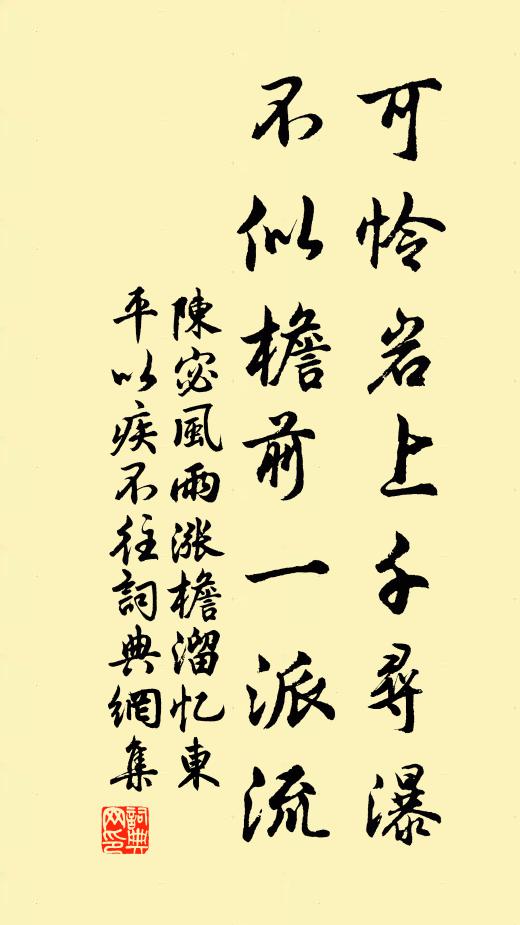 可怜岩上千尋瀑
不似檐前一派流
陳宓風雨漲檐溜忆東
平以疾不往詞典網集
詞典
网印